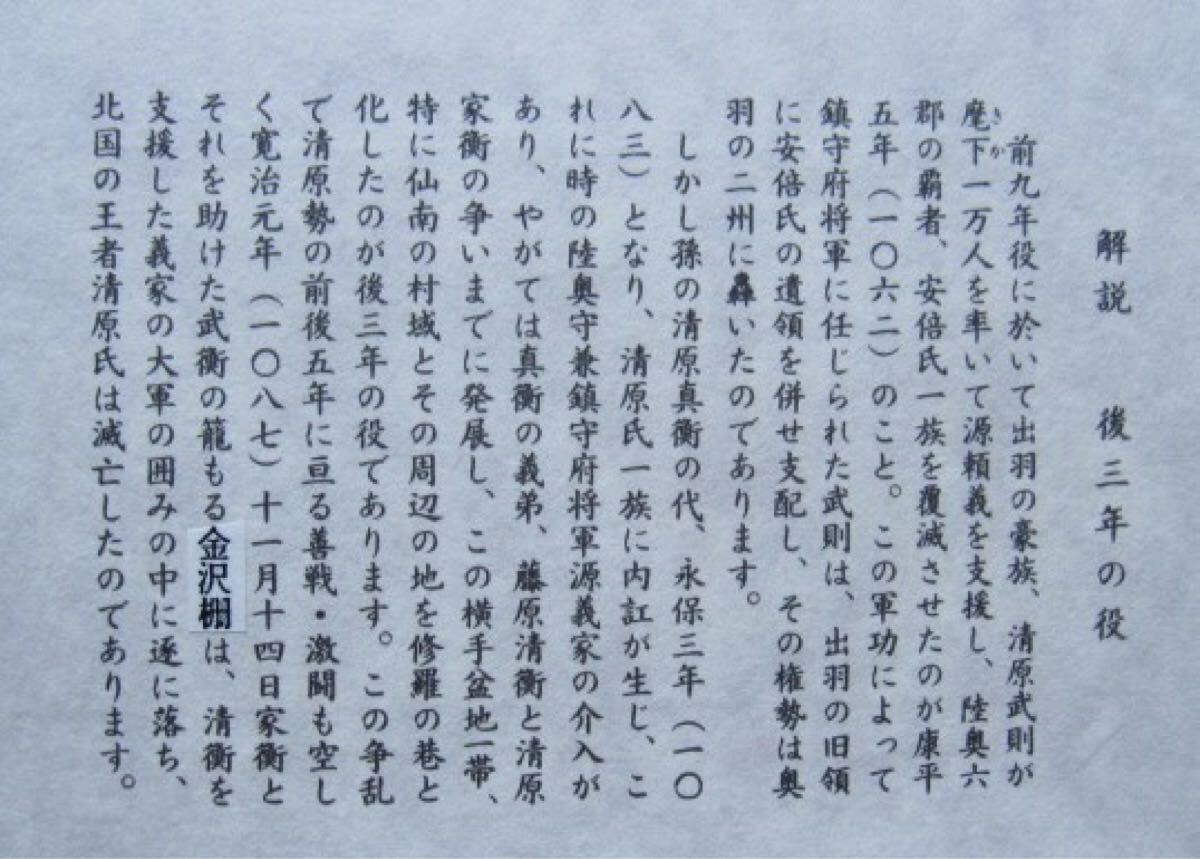 解説　後三年の役
前九年役に於いて出羽の豪族、清原武則が
麾下一万人を率いて源頼義を支援し、陸奥六
郡の覇者、安倍氏一族を覆滅させたのが康平
五年（一〇六二）のこと。この軍功によって
鎮守府将軍に任じられた武則は、出羽の旧領
に安倍氏の遺領を併せ支配し、その権勢は奥
羽の二州に轟いたのであります。
しかし孫の清原真衡の代、永保三年（一〇
八三）となり、清原氏一族に内訌が生じ、こ
れに時の陸奥守兼鎮守府将軍源義家の介入が
あり、やがては真衡の義弟、藤原清衡と清原
家衡の争いまでに発展し、この横手盆地一帯、
特に仙南の村域とその周辺の地を修羅の巷と
化したのが後三年の役であります。この争乱
で清原勢の前後五年に亘る善戦・激闘も空し
く寛治元年（一〇八七）十一月十四日家衡と
それを助けた武衡の籠もる金沢柵は、清衡を
支援した義家の大軍の囲みの中に逐に落ち、
北国の王者清原氏は滅亡したのであります。